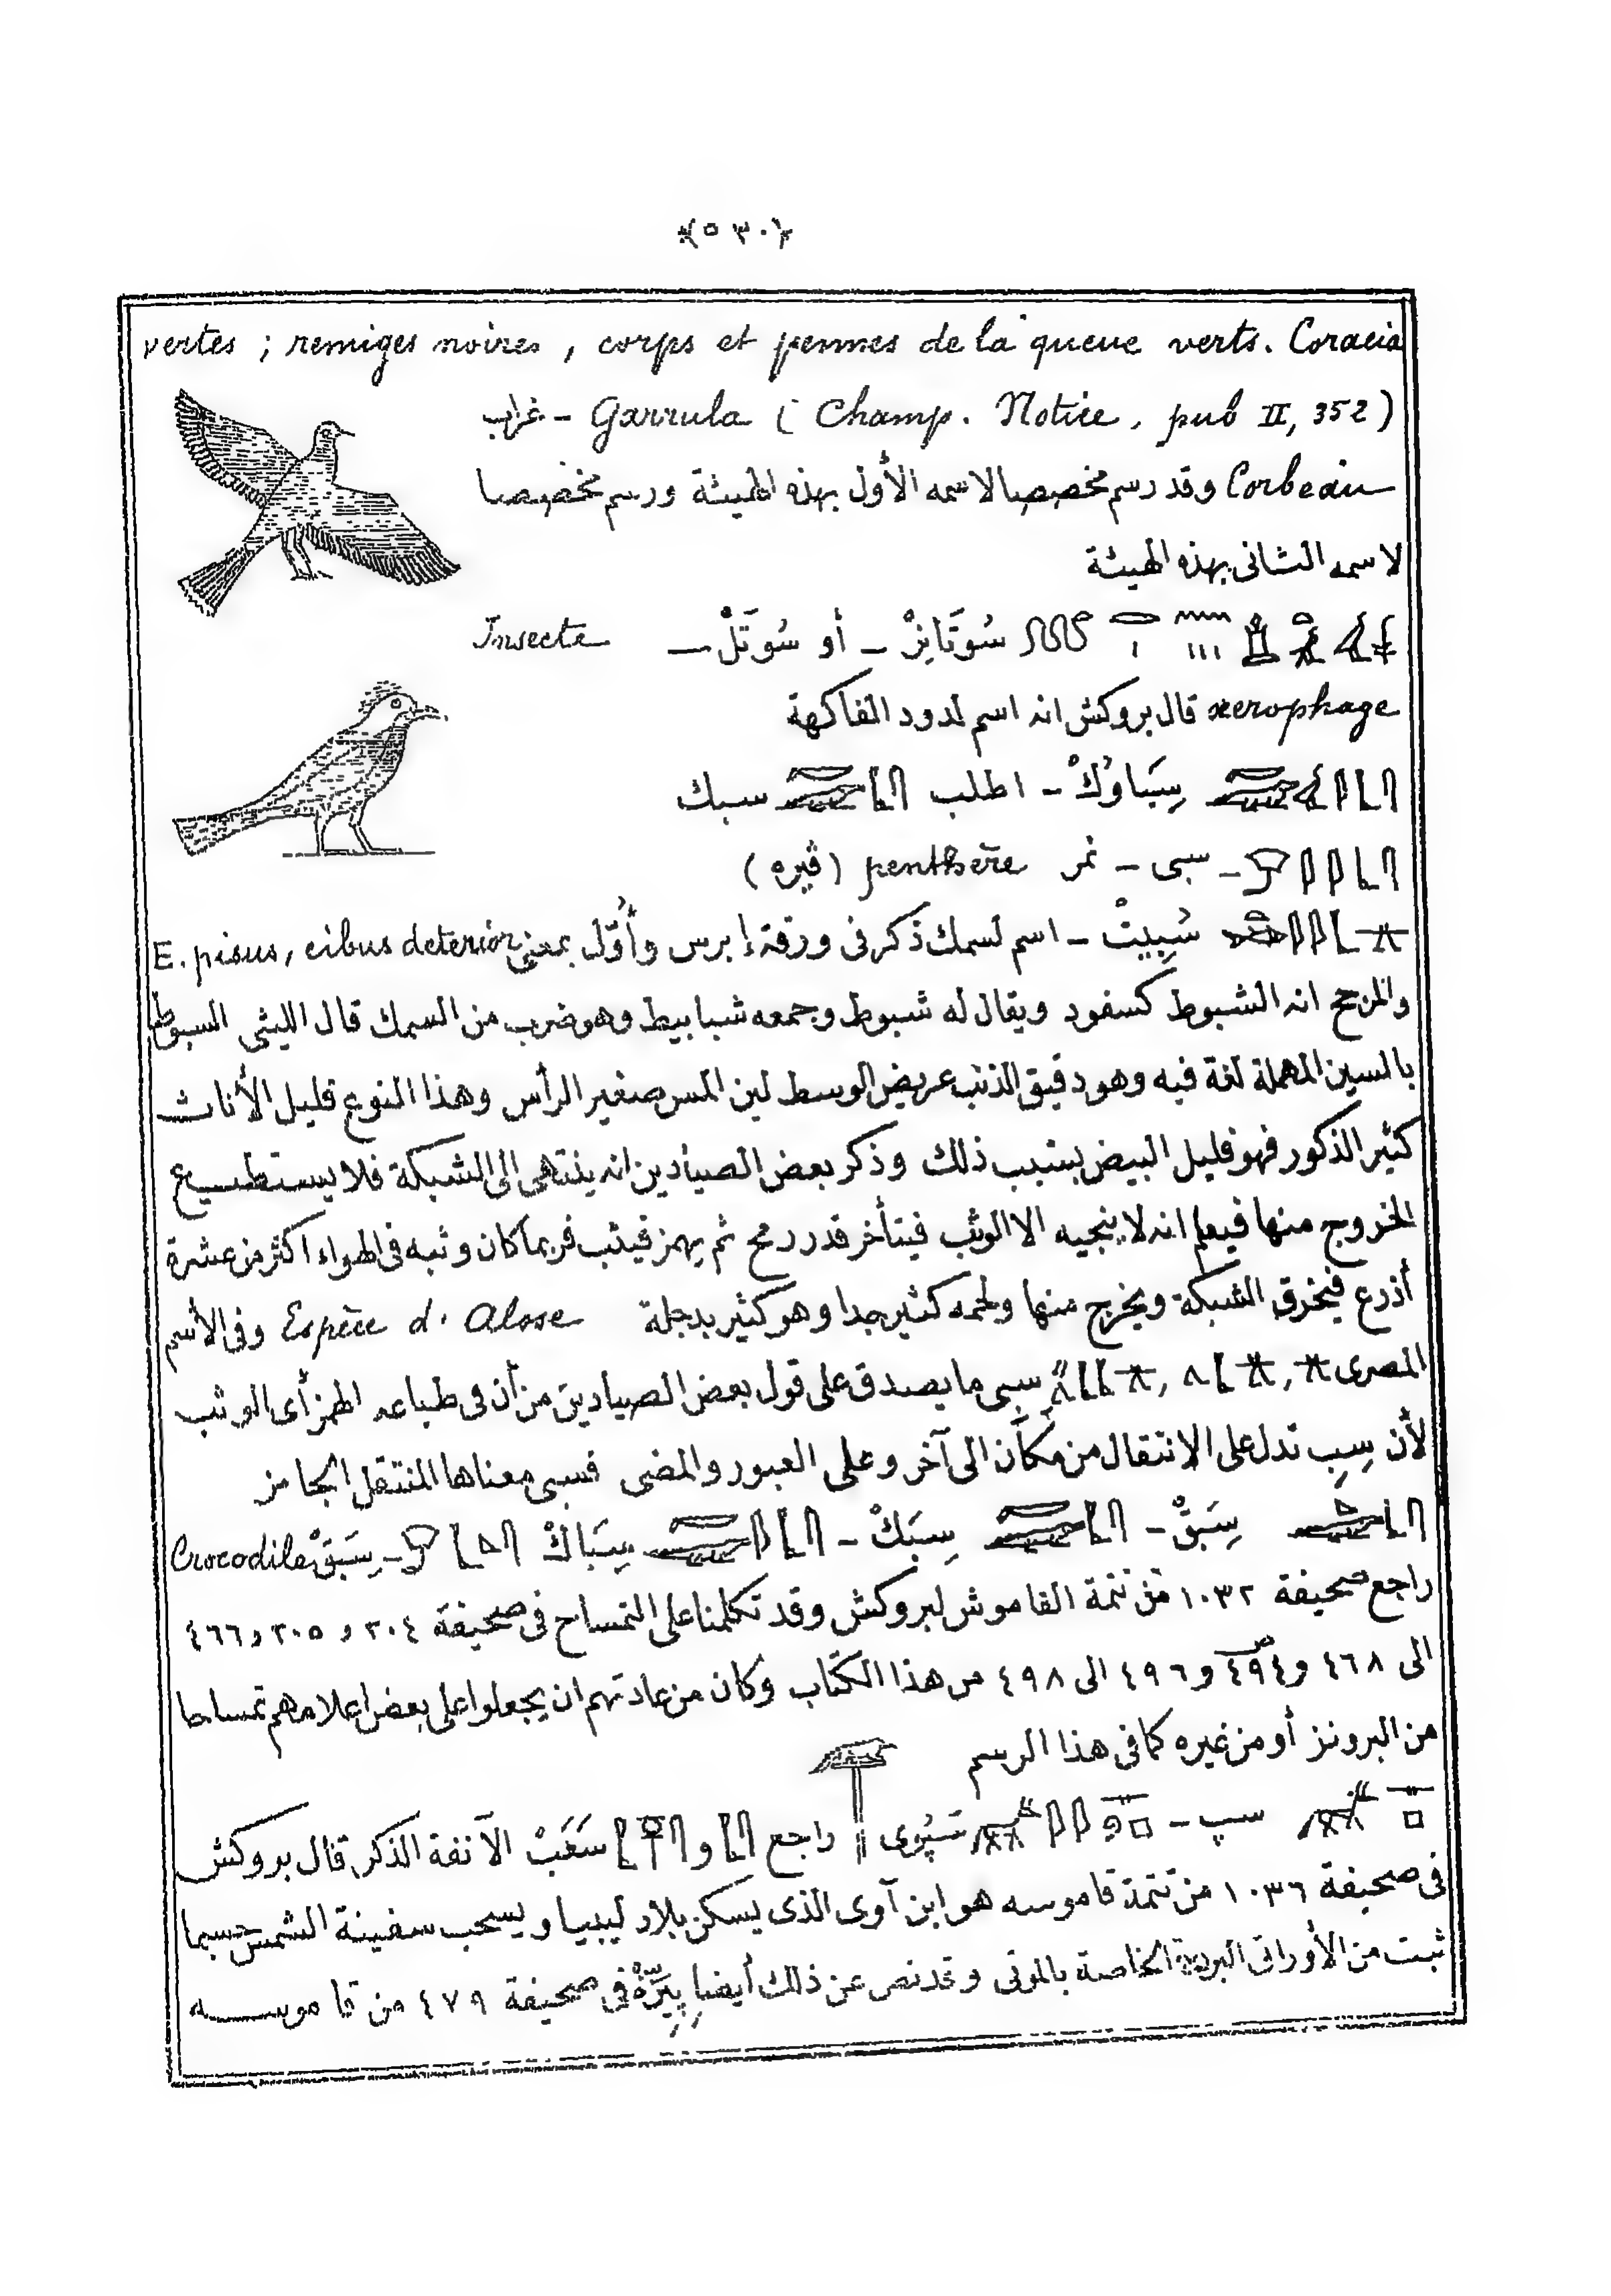 ﴿٥٣٠﴾
vertes ; remiges noires, corps et pennes de la queue verts. Coracia
Garrula (Champ. Notice, pub II, 352) – غراب
Corbeau وقد رسم مخصصا لاسمه الأول بهذه الهيئة ورسم مخصصا
لاسمه الثانى بهذه الهيئة
سُوتَانِرْ – أو سُوتَلْ – Insecte
xerophage قال بروكش انه اسم لدود الفاكهة
سِبَاوُكْ – اطلب سبك
– سبى – نمر penthère (ڤيره)
سُبِيتْ – اسم لسمك ذكر فى ورقة إبرس وأُوّل بمعنى E. pisus, cibus deterior
والمرجح انه الشبوط كسفود ويقال له شبوط وجمعه شبابيط وهو ضرب من السمك قال الليثى السبوط
بالسين المهملة لغة فيه وهو دقيق الذنب عريض الوسط لين المس صغير الرأس وهذا النوع قليل الأناث
كثير الذكور فهو قليل البيض بسبب ذلك وذكر بعض الصيادين انه ينتهى الى الشبكة فلا يستطيع
الخروج منها فيعلم انه لا ينجيه الا الوثب فيتأخر قدر رمح ثم يهمز فيثب فربما كان وثبه فى الهواء اكثر من عشرة
أذرع فيخرق الشبكة ويخرج منها ولحمه كثير جدا وهو كثير بدجلة Espèce d'Alose وفى الأسم
المصرى سبى ما يصدق على قول بعض الصيادين من أن فى طباعه الهمز أى الوثب
لأن سِبِ تدل على الانتقال من مكان الى آخر وعلى العبور والمضى فسبى معناها المنتقل الجامز
سِبَقْ – سِبَكْ – سِبَاكْ – سِبَقْ Crocodile
راجع صحيفة ١٠٣٢ من تتمة القاموس لبروكش وقد تكلمنا على التمساح فى صحيفة ٣٠٤ و ٣٠٥ و ٤٦٦
الى ٤٦٨ و ٤٩٤ و ٤٩٦ الى ٤٩٨ من هذا الكتاب وكان من عادتهم ان يجعلوا على بعض اعلامهم تمساحا
من البرونز أو من غيره كما فى هذا الرسم
سپ – سَپُوى راجع و سَعَبْ الآنفة الذكر قال بروكش
فى صحيفة ١٠٣٦ من تتمة قاموسه هو ابن آوى الذى يسكن بلاد ليبيا ويسحب سفينة الشمس حسبما
ثبت من الأوراق البردية الخاصة بالموتى وقد نص عن ذلك أيضا پِيَرّهْ فى صحيفة ٤٧٩ من قاموسه